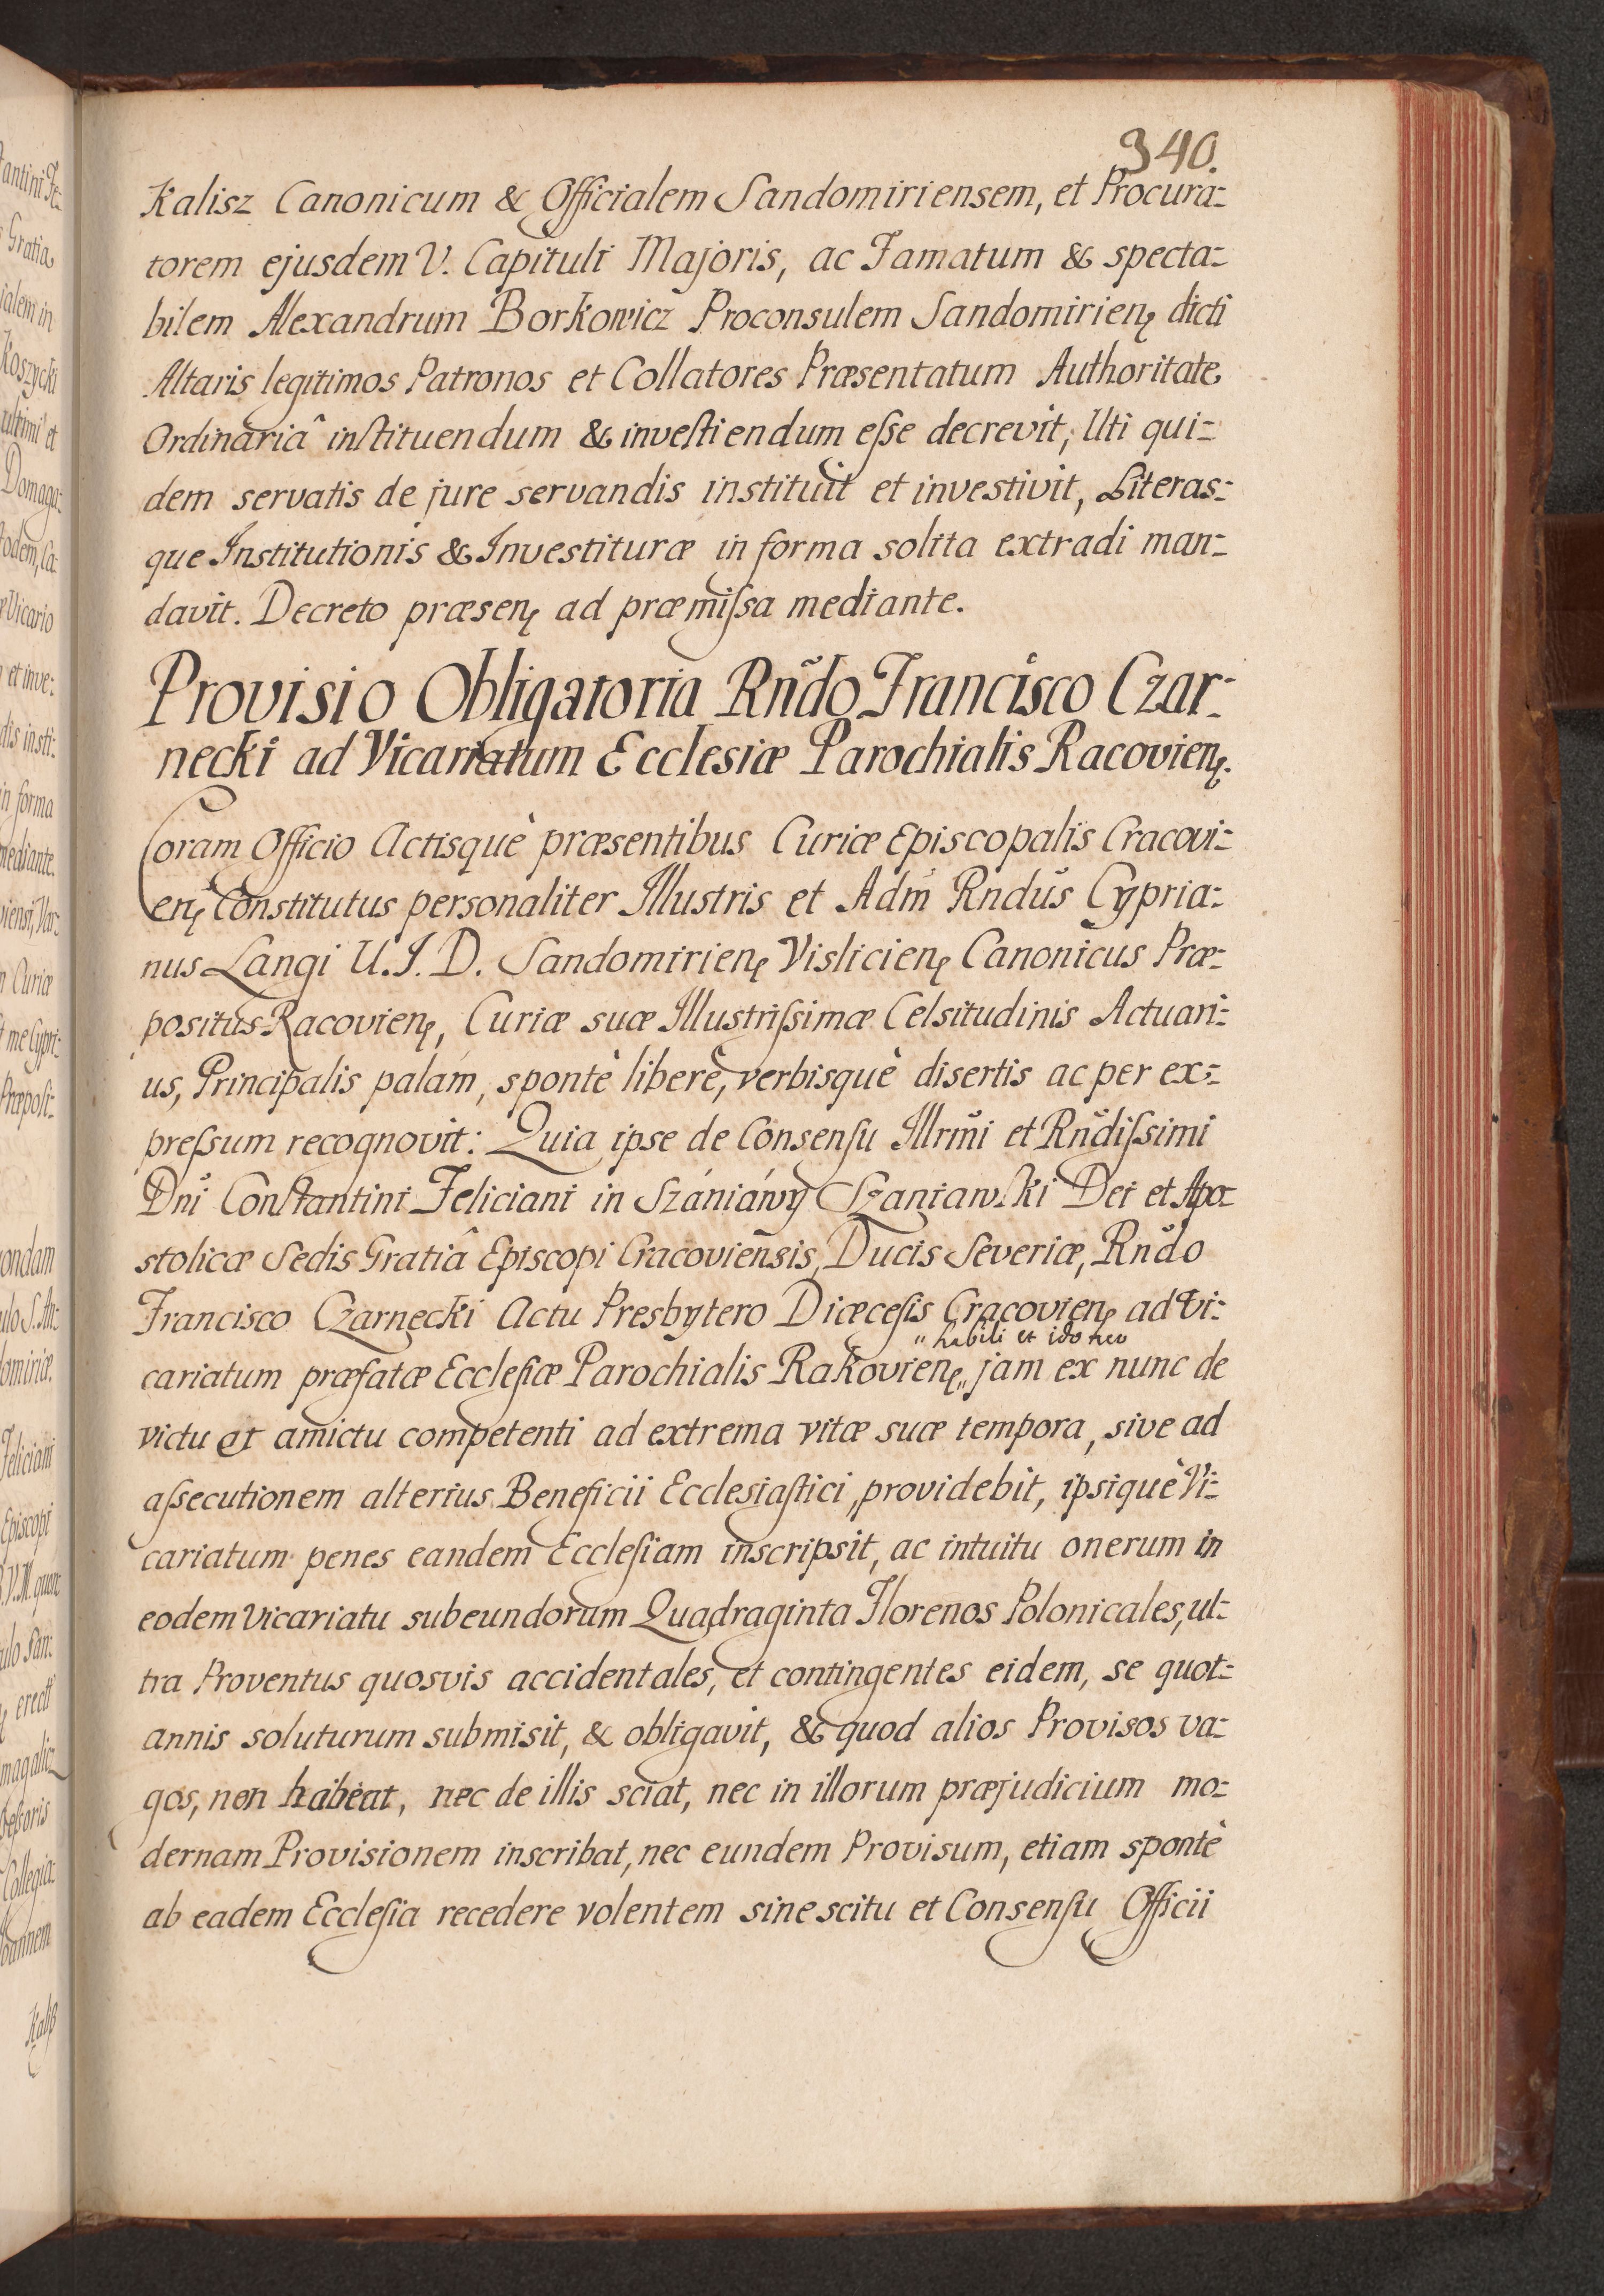 340.
Kalisz Canonicum & Officialem Sandomiriensem, et Procura=
torem ejusdem V. Capituli Majoris, ac Famatum & specta=
bilem Alexandrum Borkowicz Proconsulem Sandomirienę dicti
Altaris legitimos Patronos et Collatores Præsentatum Authoritate
Ordinariâ inſtituendum & inveſtiendum eſse decrevit, Uti qui=
dem servatis de jure servandis instituit et investivit, Literas=
que Institutionis & Investituræ in forma solita extradi man=
davit. Decreto præsenę ad præmiſsa mediante.
Provisio Obligatoria Rñdo Francisco Czar=
necki ad Vicariatum Ecclesiæ Parochialis Racovienę.
Coram Officio Actisquè præsentibus Curiæ Episcopalis Cracovi=
enę Constitutus personaliter Illustris et Adm̃ Rndũs Cypria=
nus Langi U.J.D. Sandomirienę Vislicienę Canonicus Præ=
positus Racovienę, Curiæ suæ Illustriſsimæ Celsitudinis Actuari=
us, Principalis palám, spontè liberè, verbisquè disertis ac per ex=
preſsum recognovit: Quia ipse de Consenſu Illrm̃i et Rñdiſsimi
Dnĩ Conſtantini Feliciani in Szániáwy Szaniawſki Dei et Apo=
stolicæ Sedis Gratiâ Episcopi Cracovieñsis, Ducis Severiæ, Rñdo
Francisco Czarnecki Actu Presbytero Diæceſis Cracovienę ad Vi=
" habili et idoneo
cariatum præfatæ Eccleſiæ Parochialis Rakovienę „ jam ex nunc de
victu et amictu competenti ad extrema vitæ suæ tempora, sive ad
aſsecutionem alterius Beneficii Ecclesiaſtici, providebit, ipsiquè Vi=
cariatum penes eandem Eccleſiam inscripsit, ac intuitu onerum in
eodem Vicariatu subeundorum Quadraginta Florenos Polonicales, ul=
tra Proventus quosvis accidentales, et contingentes eidem, se quot=
annis soluturum submisit, & obligavit, & quod alios Provisos va=
gos, non habeat, nec de illis sciat, nec in illorum præjudicium mo=
dernam Provisionem inscribat, nec eundem Provisum, etiam spontè
ab eadem Eccleſia recedere volentem sine scitu et Consenſu Officii